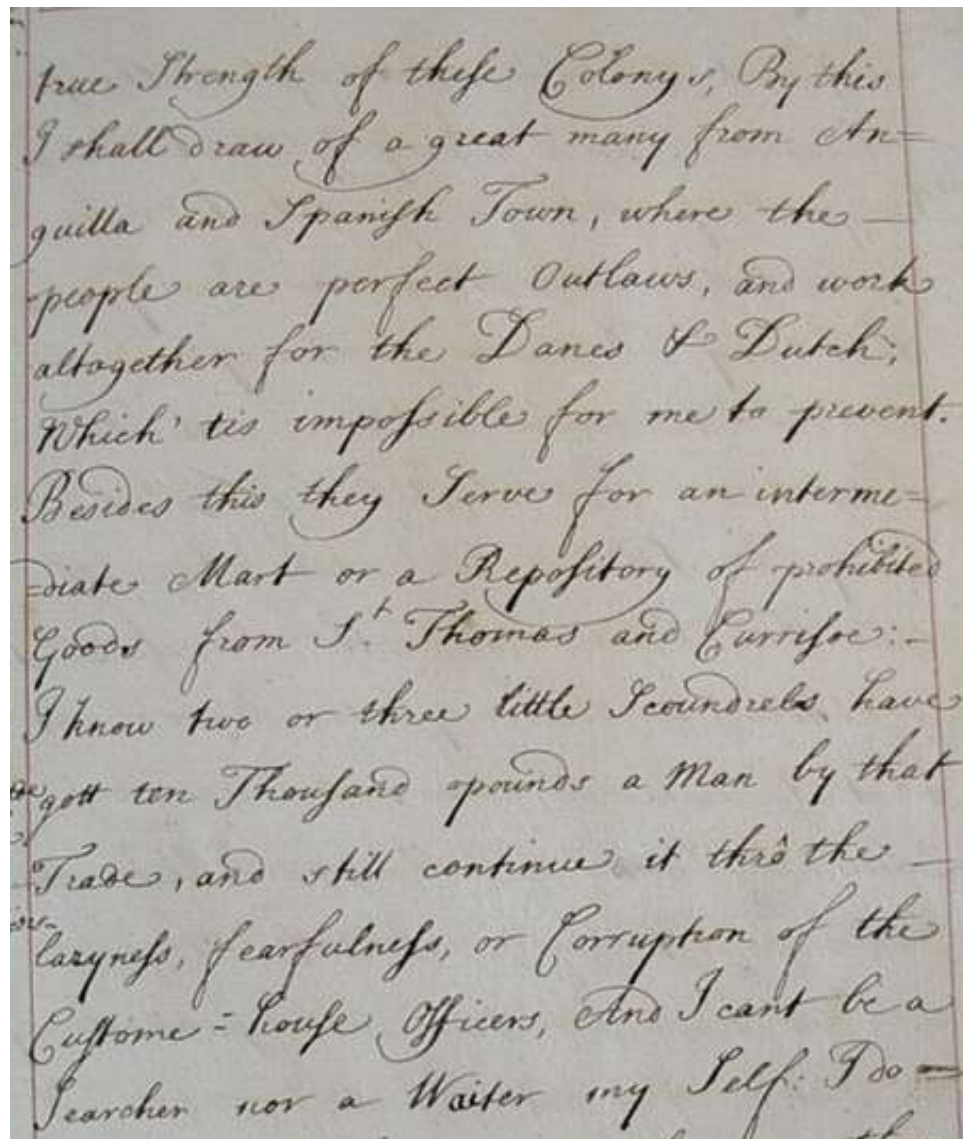 true Strength of these Colonys, By this
I shall draw of a great many from An=
guilla and Spanish Town, where the —
people are perfect Outlaws, and work
altogether for the Danes & Dutch;
Which' tis impossible for me to prevent.
Besides this they Serve for an interme=
=diate Mart or a Repository of prohibited
Goods from St. Thomas and Currisoe: –
I know two or three little Scoundrels have
gott ten Thousand pounds a Man by that
Trade, and still continue it thrô the —
lazyness, fearfulness, or Corruption of the
Custome = house Officers, And I cant be a
Searcher nor a Waiter my Self: I do =